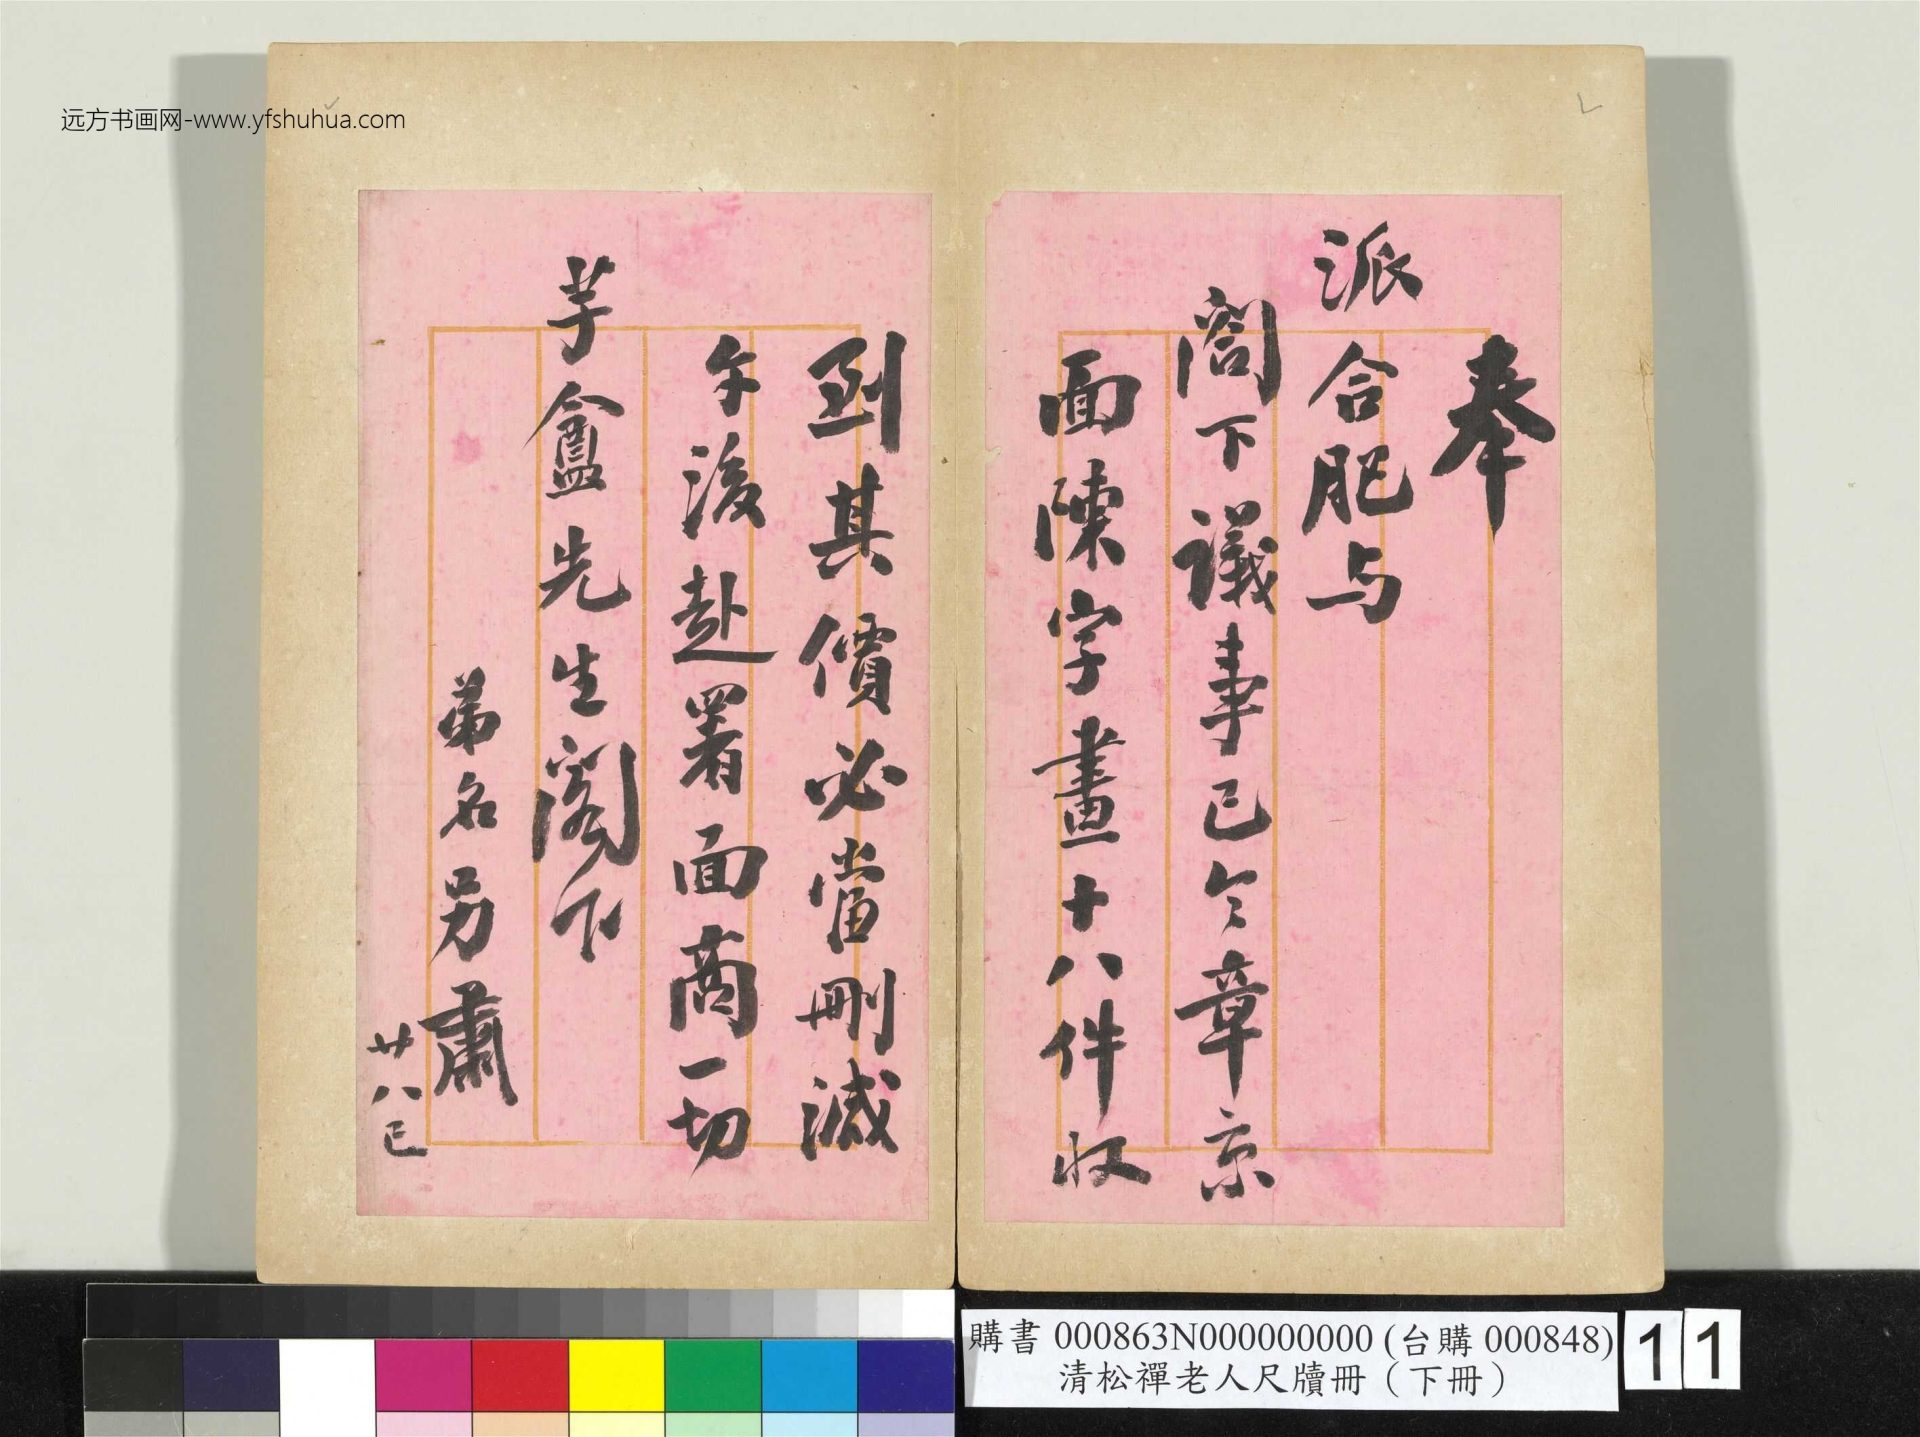 远方书画网-www.yfshuhua.com
奉
派合肥与
閤下議事已令章京
面陳字畫十八件收
到其價必當刪減
午後赴署面商一切
芋盦先生閣下
弟名另肅
廿八巳
購書 000863N000000000 (台購 000848)
清松禪老人尺牘冊（下冊）
11